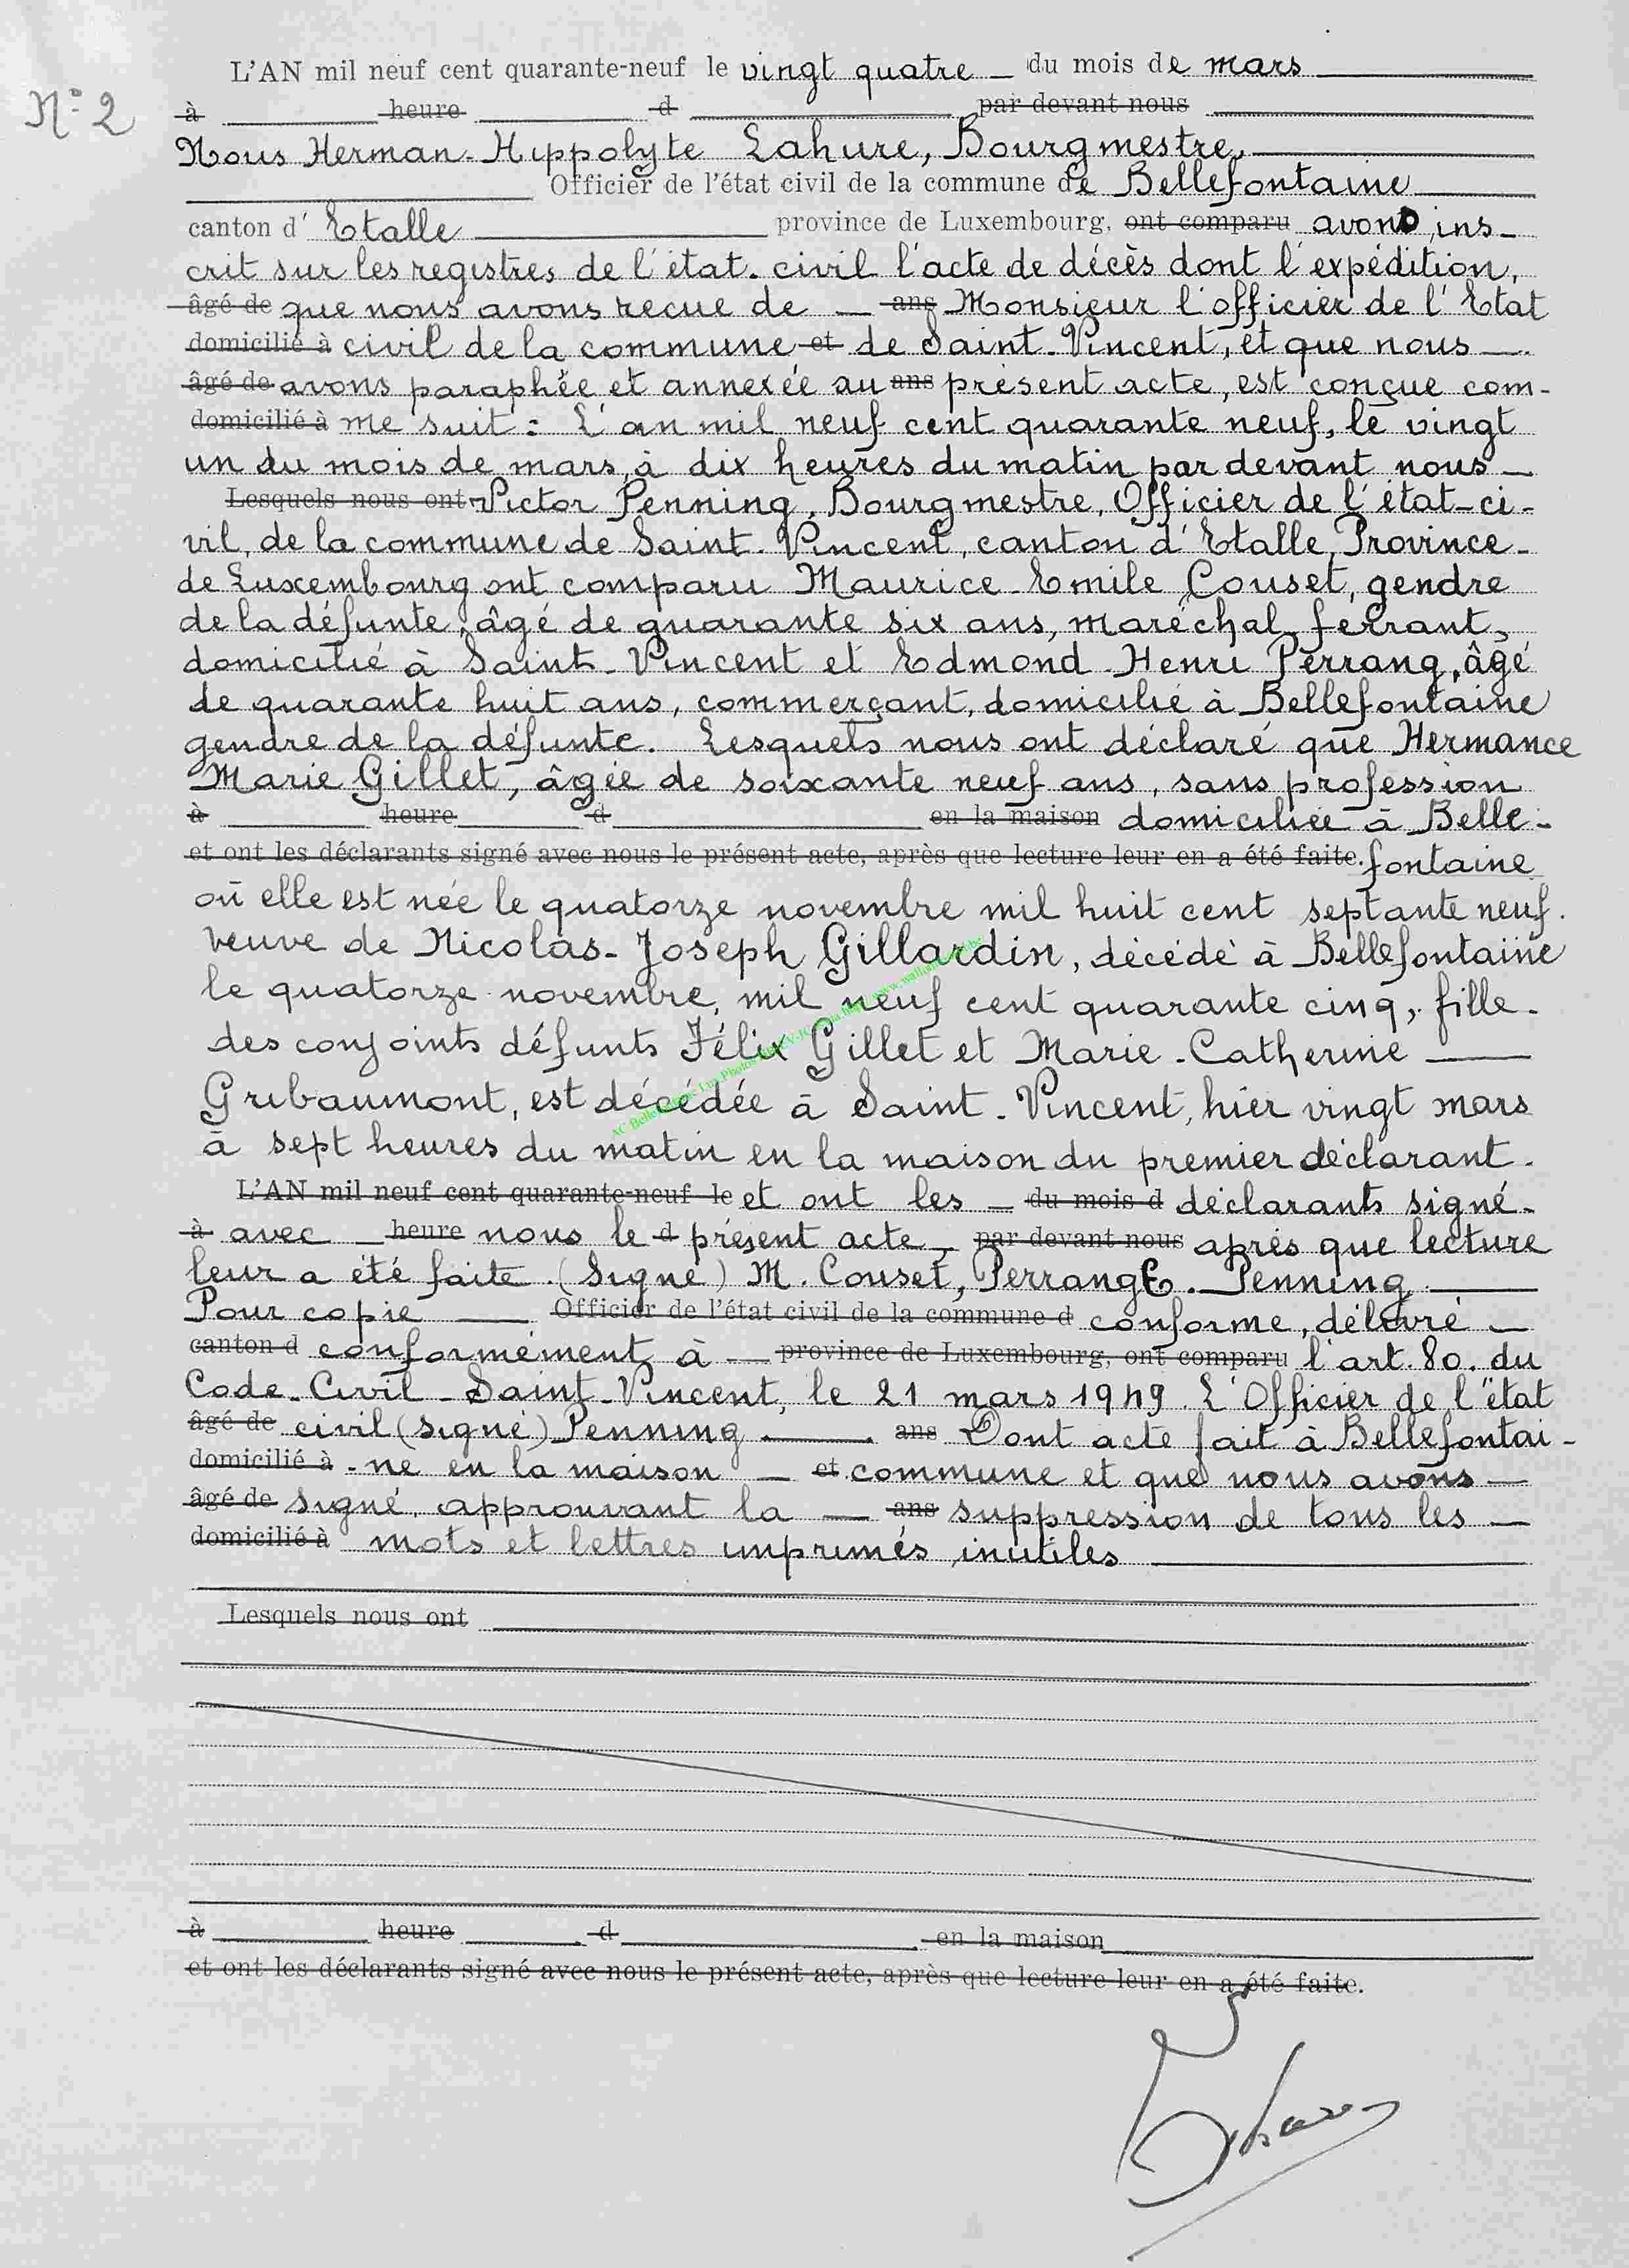 L'AN mil neuf cent quarante-neuf le vingt quatre _ du mois de mars
N° 2
à heure d par devant nous
Nous Herman-Hippolyte Lahure, Bourgmestre,
Officier de l'état civil de la commune de Bellefontaine
canton d'Etalle province de Luxembourg, ont comparu avons ins-
crit sur les registres de l'état-civil l'acte de décès dont l'expédition,
âgé de que nous avons recue de _ ans Monsieur l'officier de l'Etat
domicilié à civil de la commune et de Saint-Vincent, et que nous _
âgé de avons paraphée et annexée au ans présent acte, est conçue com-
domicilié à me suit : L'an mil neuf cent quarante neuf, le vingt
un du mois de mars, à dix heures du matin par devant nous _
Lesquels nous ont Victor Penning, Bourgmestre, Officier de l'état-ci-
vil, de la commune de Saint-Vincent, canton d'Etalle, Province-
de Luxembourg ont comparu Maurice-Emile Couset, gendre
de la défunte, âgé de quarante six ans, maréchal-ferrant,
domicilié à Saint-Vincent et Edmond-Henri Perrang, âgé
de quarante huit ans, commerçant, domicilié à Bellefontaine
gendre de la défunte. Lesquels nous ont déclaré que Hermance
Marie Gillet, âgée de soixante neuf ans, sans profession
à heure d en la maison domiciliée à Belle-
et ont les déclarants signé avec nous le présent acte, après que lecture leur en a été faite. fontaine
où elle est née le quatorze novembre mil huit cent septante neuf.
veuve de Nicolas-Joseph Gillardin, décédé à Bellefontaine
le quatorze novembre, mil neuf cent quarante cinq, fille-
des conjoints défunts Félix Gillet et Marie-Catherine
Gribaumont, est décédée à Saint-Vincent, hier vingt mars
à sept heures du matin en la maison du premier déclarant.
L'AN mil neuf cent quarante-neuf le et ont les _ du mois d déclarants signé-
à avec _ heure nous le d présent acte, par devant nous après que lecture
leur a été faite. (Signé) M. Couset, Perrang E. Penning
Pour copie Officier de l'état civil de la commune d conforme, délivré _
canton d conformément à _ province de Luxembourg, ont comparu l'art. 80. du
Code-Civil-Saint-Vincent, le 21 mars 1949. L'Officier de l'état
âgé de civil (signé) Penning ans Dont acte fait à Bellefontai-
domicilié à -ne en la maison _ et commune et que nous avons _
âgé de signé, approuvant la _ ans suppression de tous les _
domicilié à mots et lettres imprimés inutiles
Lesquels nous ont
à heure d en la maison
et ont les déclarants signé avec nous le présent acte, après que lecture leur en a été faite.